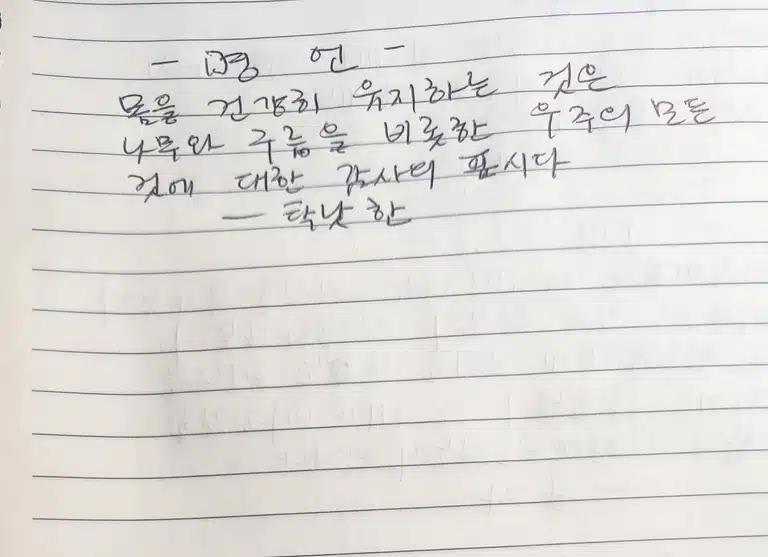 - 명 언 -
몸을 건강히 유지하는 것은
나무와 구름을 비롯한 우주의 모든
것에 대한 감사의 표시다
- 탁낫 한